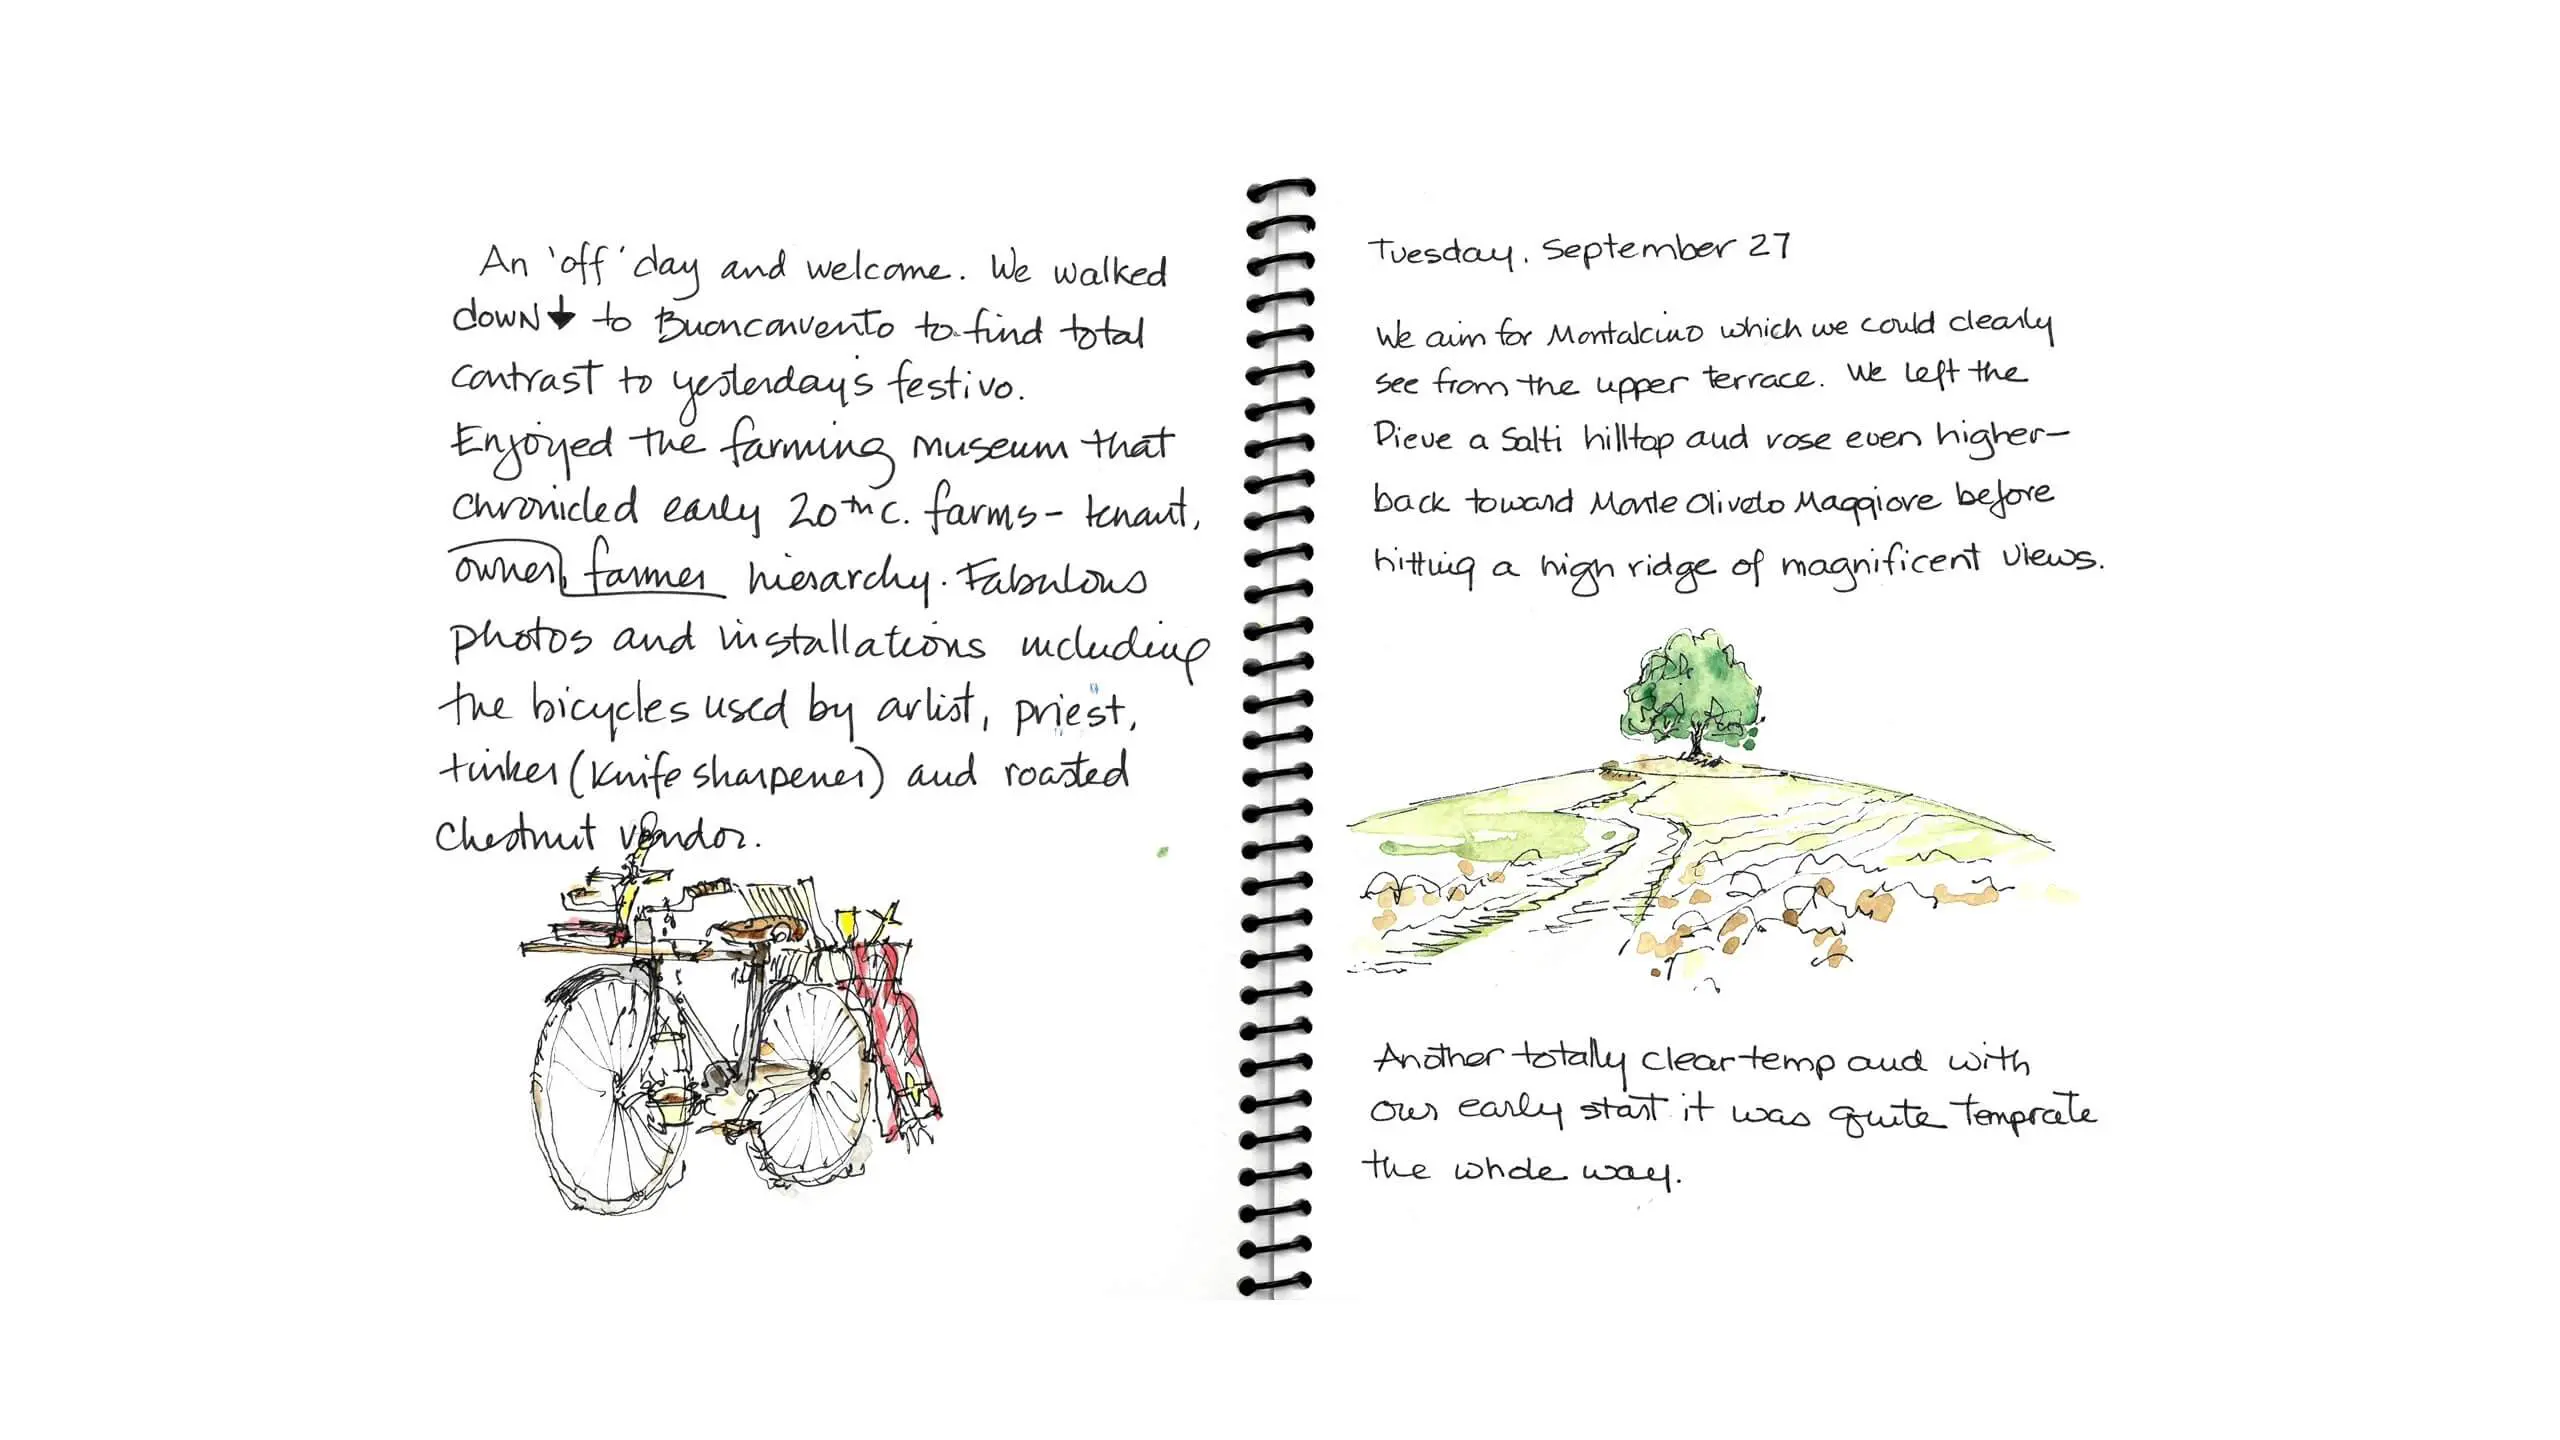 An 'off' day and welcome. We walked
down↓ to Buonconvento to find total
contrast to yesterday's festivo.
Enjoyed the farming museum that
chronicled early 20th c. farms – tenant,
owner, farmer hierarchy. Fabulous
photos and installations including
the bicycles used by artist, priest,
tinker (knife sharpener) and roasted
chestnut vendor.
Tuesday, September 27
We aim for Montalcino which we could clearly
see from the upper terrace. We left the
Pieve a Salti hilltop and rose even higher–
back toward Monte Oliveto Maggiore before
hitting a high ridge of magnificent views.
Another totally clear temp and with
our early start it was quite temprate
the whole way.